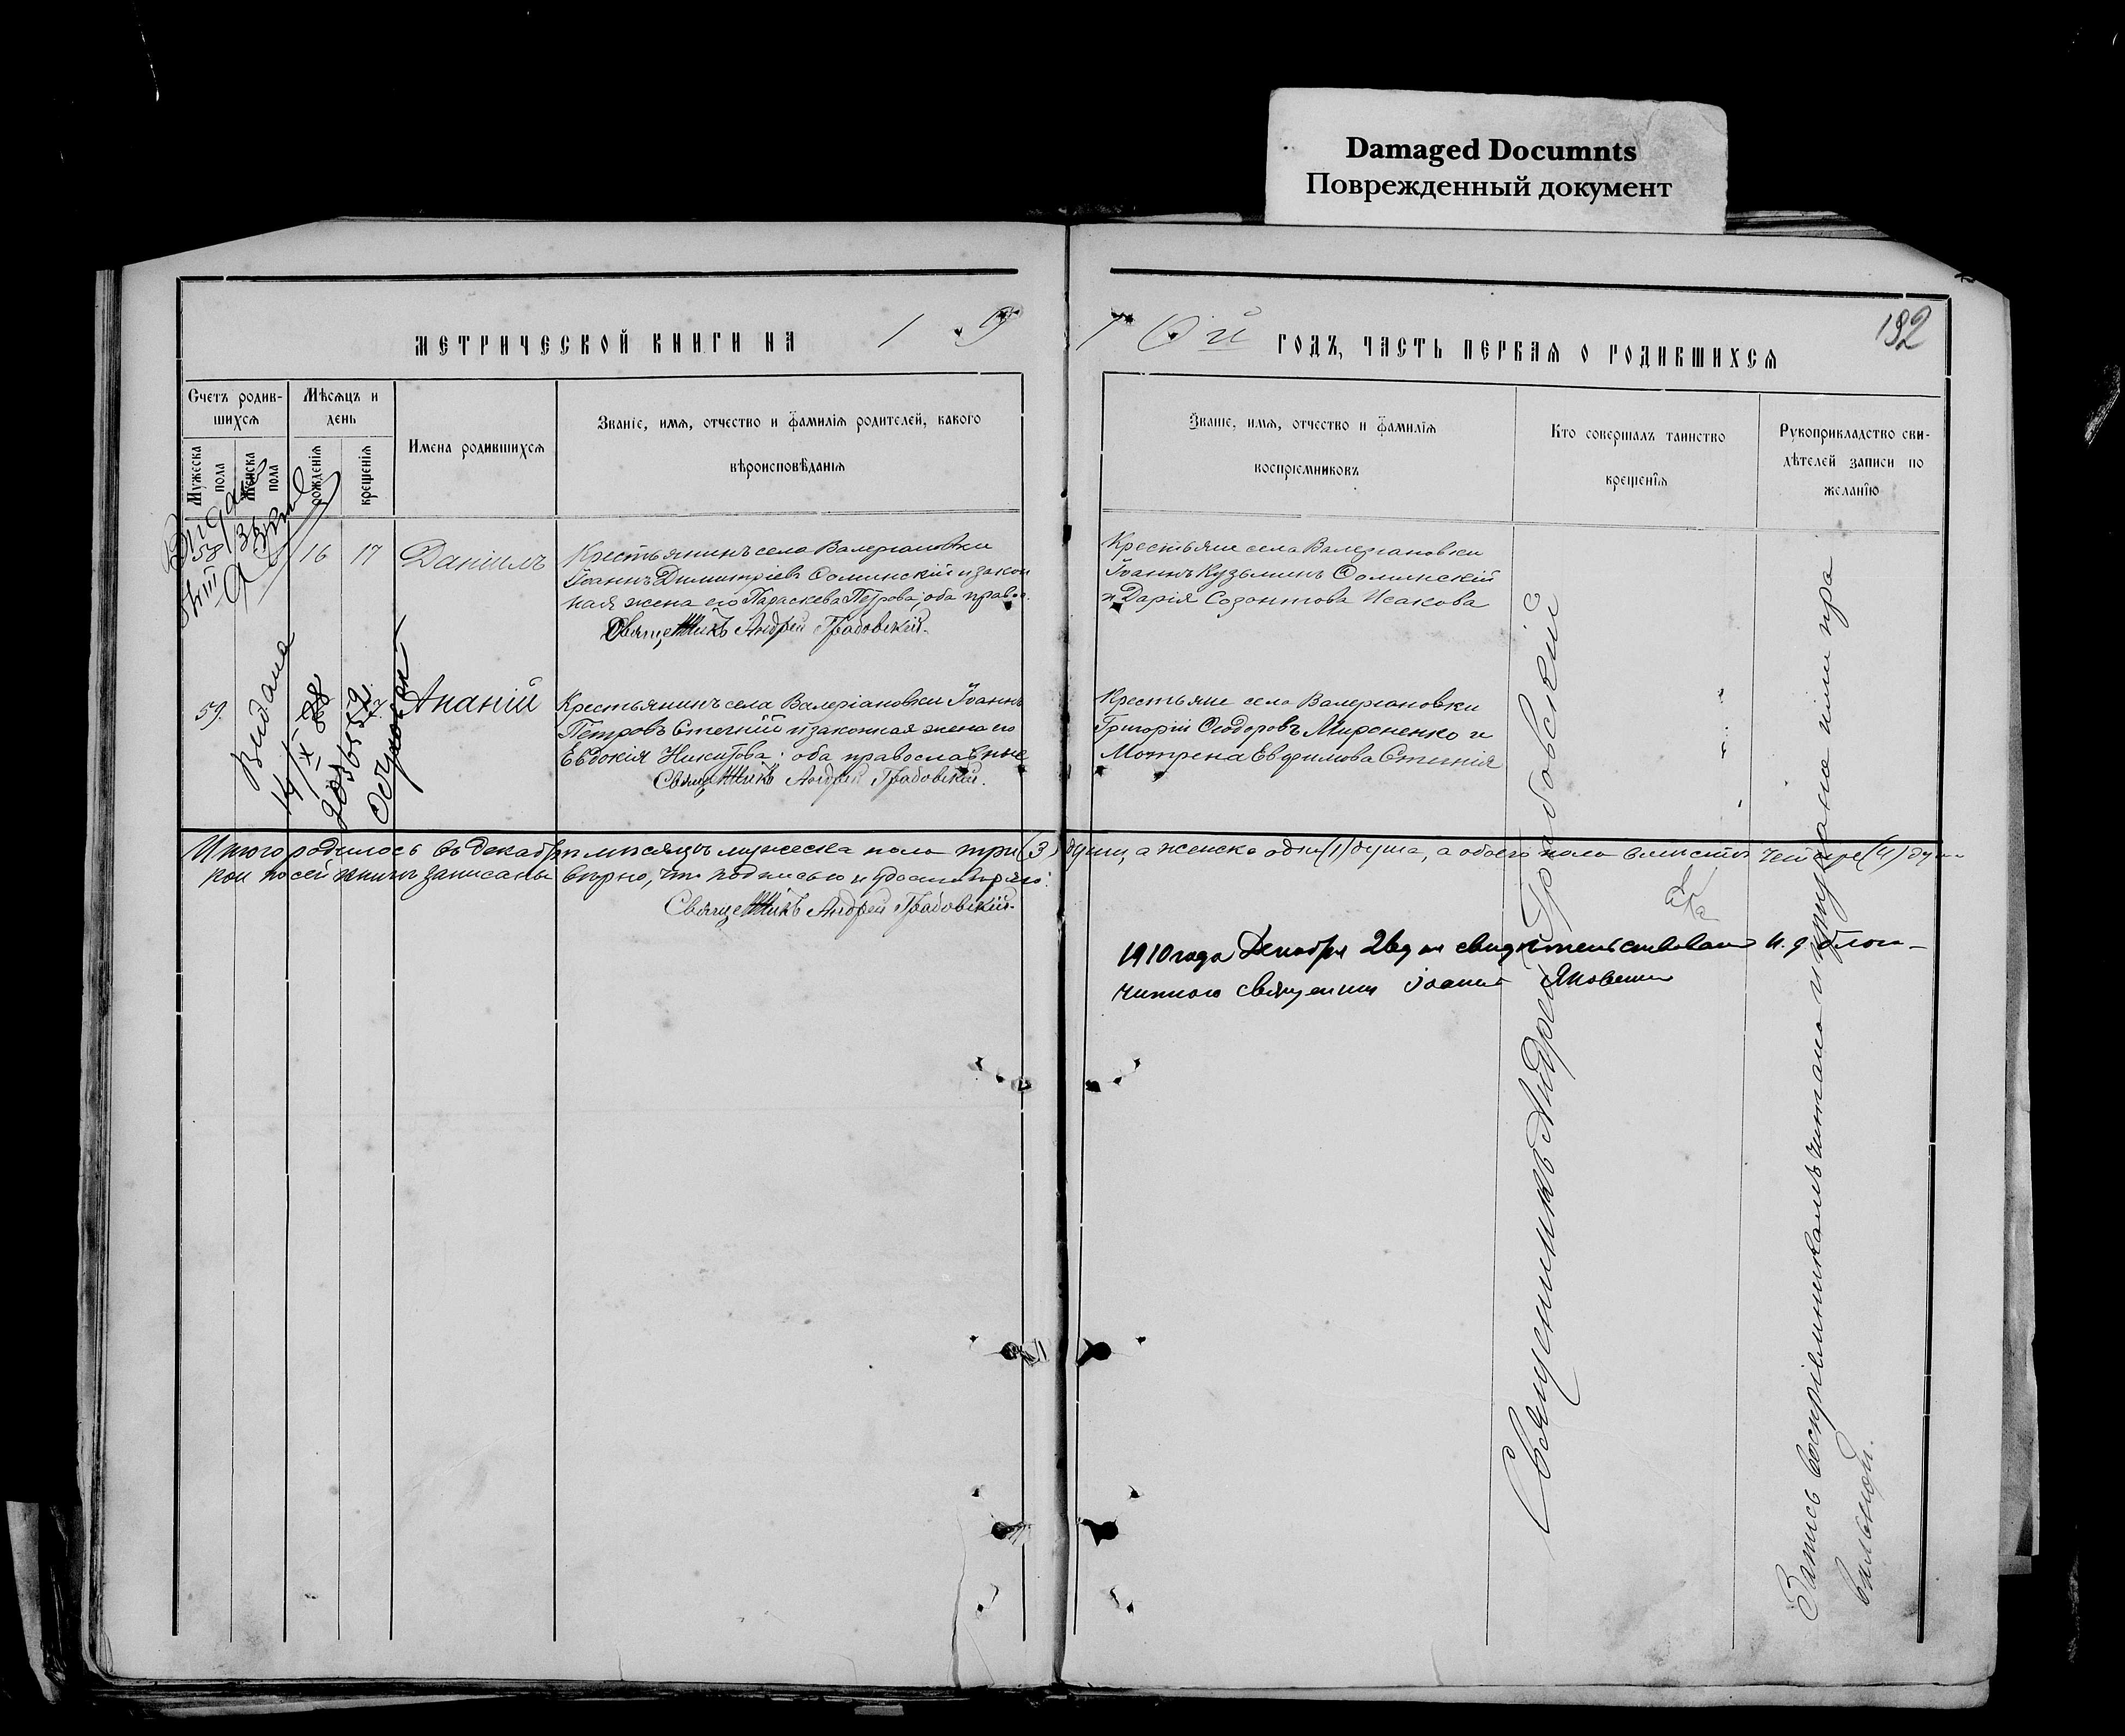 Damaged Documnts
Поврежденный документ
192
МЕТРИЧЕСКОЙ КНИГИ НА 1910й ГОДЪ, ЧАСТЬ ПЕРВАЯ О РОДИВШИХСЯ
Счетъ родив-
шихся
Мужеска
пола
Женска
пола
Мѣсяцъ и
день
рожденія
крещенія
Имена родившихся
Званіе, имя, отчество и фамилія родителей, какого
вѣроисповѣданія
Званіе, имя, отчество и фамилія
воспріемниковъ
Кто совершалъ таинство
крещенія
Рукоприкладство сви-
дѣтелей записи по
желанію
58
16 17 Даніилъ
Крестьянинъ села Валеріановки
Іоаннъ Димитріевъ и закон
ная жена его Параскева Петрова; оба прав.
Священникъ Андрей Грабовскій.
Крестьяне села Валеріановки
Іоаннъ Кузьминъ
и Дарія Созонтова Исакова
59.
Выдана
Ананій
Крестьянинъ села Валеріановки Іоаннъ
Петровъ и законная жена его
Евдокія Никитова; оба православные
Священникъ Андрей Грабовскій.
Крестьяне села Валеріановки
Григорій Ѳеодоровъ Мироненко и
Мотрена Евфимова
Священникъ Андрей Грабовскій
Запись воспріемникамъ читана и признана ими пра
вильной.
Итого родилось въ декабрѣ мѣсяцѣ мужеска пола три (3) души, а женска одна (1) душа, а обоего пола вмѣстѣ четыре (4) душ
кои по сей книгѣ записаны вѣрно, что подписью и удостовѣряю.
Священникъ Андрей Грабовскій.
1910 года Декабря свидѣтельствовалъ и. д. благо-
чиннаго священникъ Іоаннъ